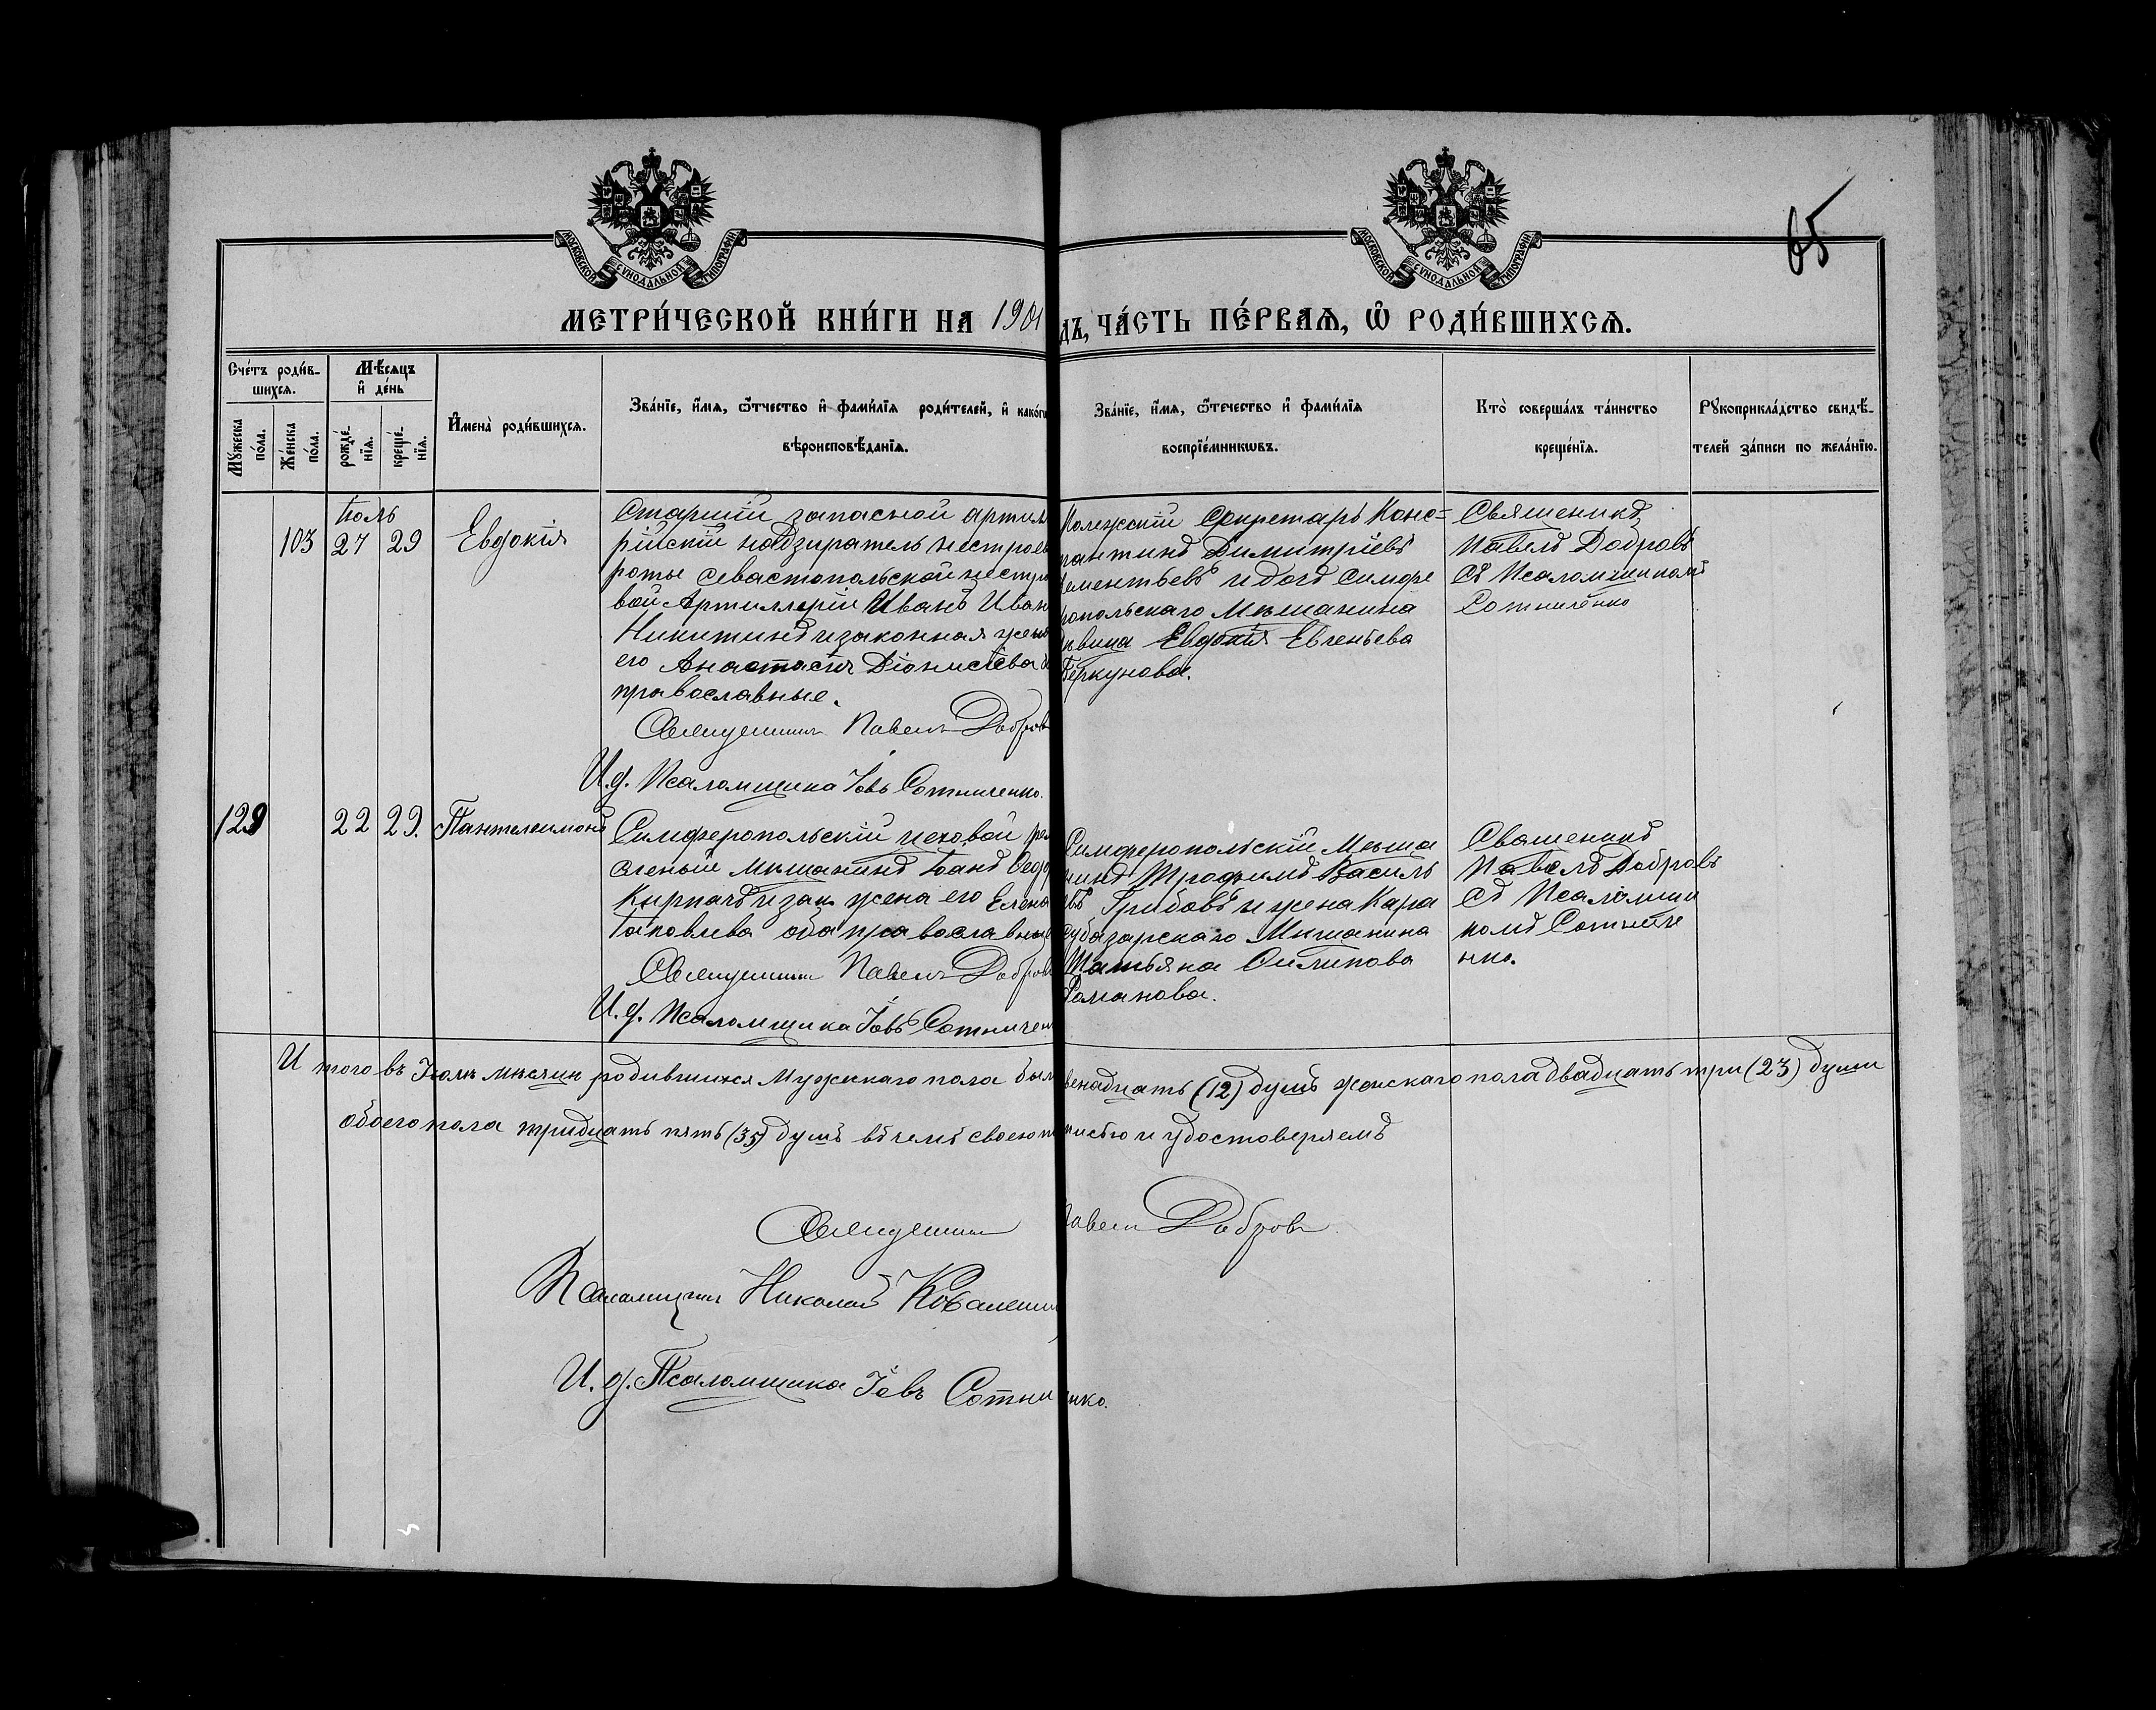 65
МОСКОВСКОЙ СѴНОДАЛЬНОЙ ТИПОГРАФІИ
МОСКОВСКОЙ СѴНОДАЛЬНОЙ ТИПОГРАФІИ
МЕТРИ́ЧЕСКОЙ КНИ́ГИ НА 1901
ДЪ, ЧА́СТЬ ПЕ́РВАѦ, Ѡ҆ РОДИ́ВШИХСѦ.
Сче́тъ роди́в-
шихсѧ.
Мꙋ́жеска по́ла.
Же́нска по́ла.
Мѣ́сѧцъ
и҆ де́нь
рожде́-
нїѧ.
креще́-
нїѧ.
И҆мена̀ роди́вшихсѧ.
Зва́нїе, и҆́мѧ, ѻ҆́тчество и҆ фами́лїѧ роди́телей, и҆ како́гѡ
вѣроисповѣ́данїѧ.
Зва́нїе, и҆́мѧ, ѻ҆те́чество и҆ фами́лїѧ
воспрїе́мникѡвъ.
Кто̀ соверша́лъ та́инство
креще́нїѧ.
Рꙋкоприкла́дство свидѣ́-
телей за́писи по жела́нїю.
Іюль
103 27 29 Евдокія
Старшій запасной артил
рійскій надзиратель нестроев
роты Севастопольской
вой Артиллеріи Иванъ Иван
Никитинъ и законная жена
его Анастасія Діонисіева
православные.
Священникъ Павелъ Добровъ
И.д. Псаломщика Іовъ Сотниченко.
Колежскій Секретарь Конс=
тантинъ Димитріевъ
ементьевъ и дочь Симфе
ропольскаго Мѣщанина
дѣвица Евдокія Евгеньева
Священикъ
Павелъ Добровъ
съ Псаломщикомъ
Сотниченко
129 22 29. Пантелеимонъ
Симферопольскій цеховой
сленый мѣщанинъ Іоанъ Федор
Кирпачъ и зак. жена его Елена
Іаковлева оба православные
Священникъ Павелъ Добровъ
И.д. Псаломщика Іовъ Сотничен
Симферопольскій Мѣща
нинъ Трофимъ Василь
евъ Грибовъ и жена Кара
субазарскаго Мѣщанина
Татьяна Филипова
Романова.
Священикъ
Павелъ Добровъ
съ Псаломщи
комъ Сотниче
нко.
Итого въ Іюлѣ мѣсяцѣ родившихся Мужескаго пола был
венадцать (12) душъ женскаго пола двадцать три (23) души
обоего пола тридцать пять (35) душъ въ чемъ своею
писью и удостоверяемъ
Священникъ
Павелъ Добровъ
Псаломщикъ Николай
И.д. Псаломщика Іовъ Сотниченко.